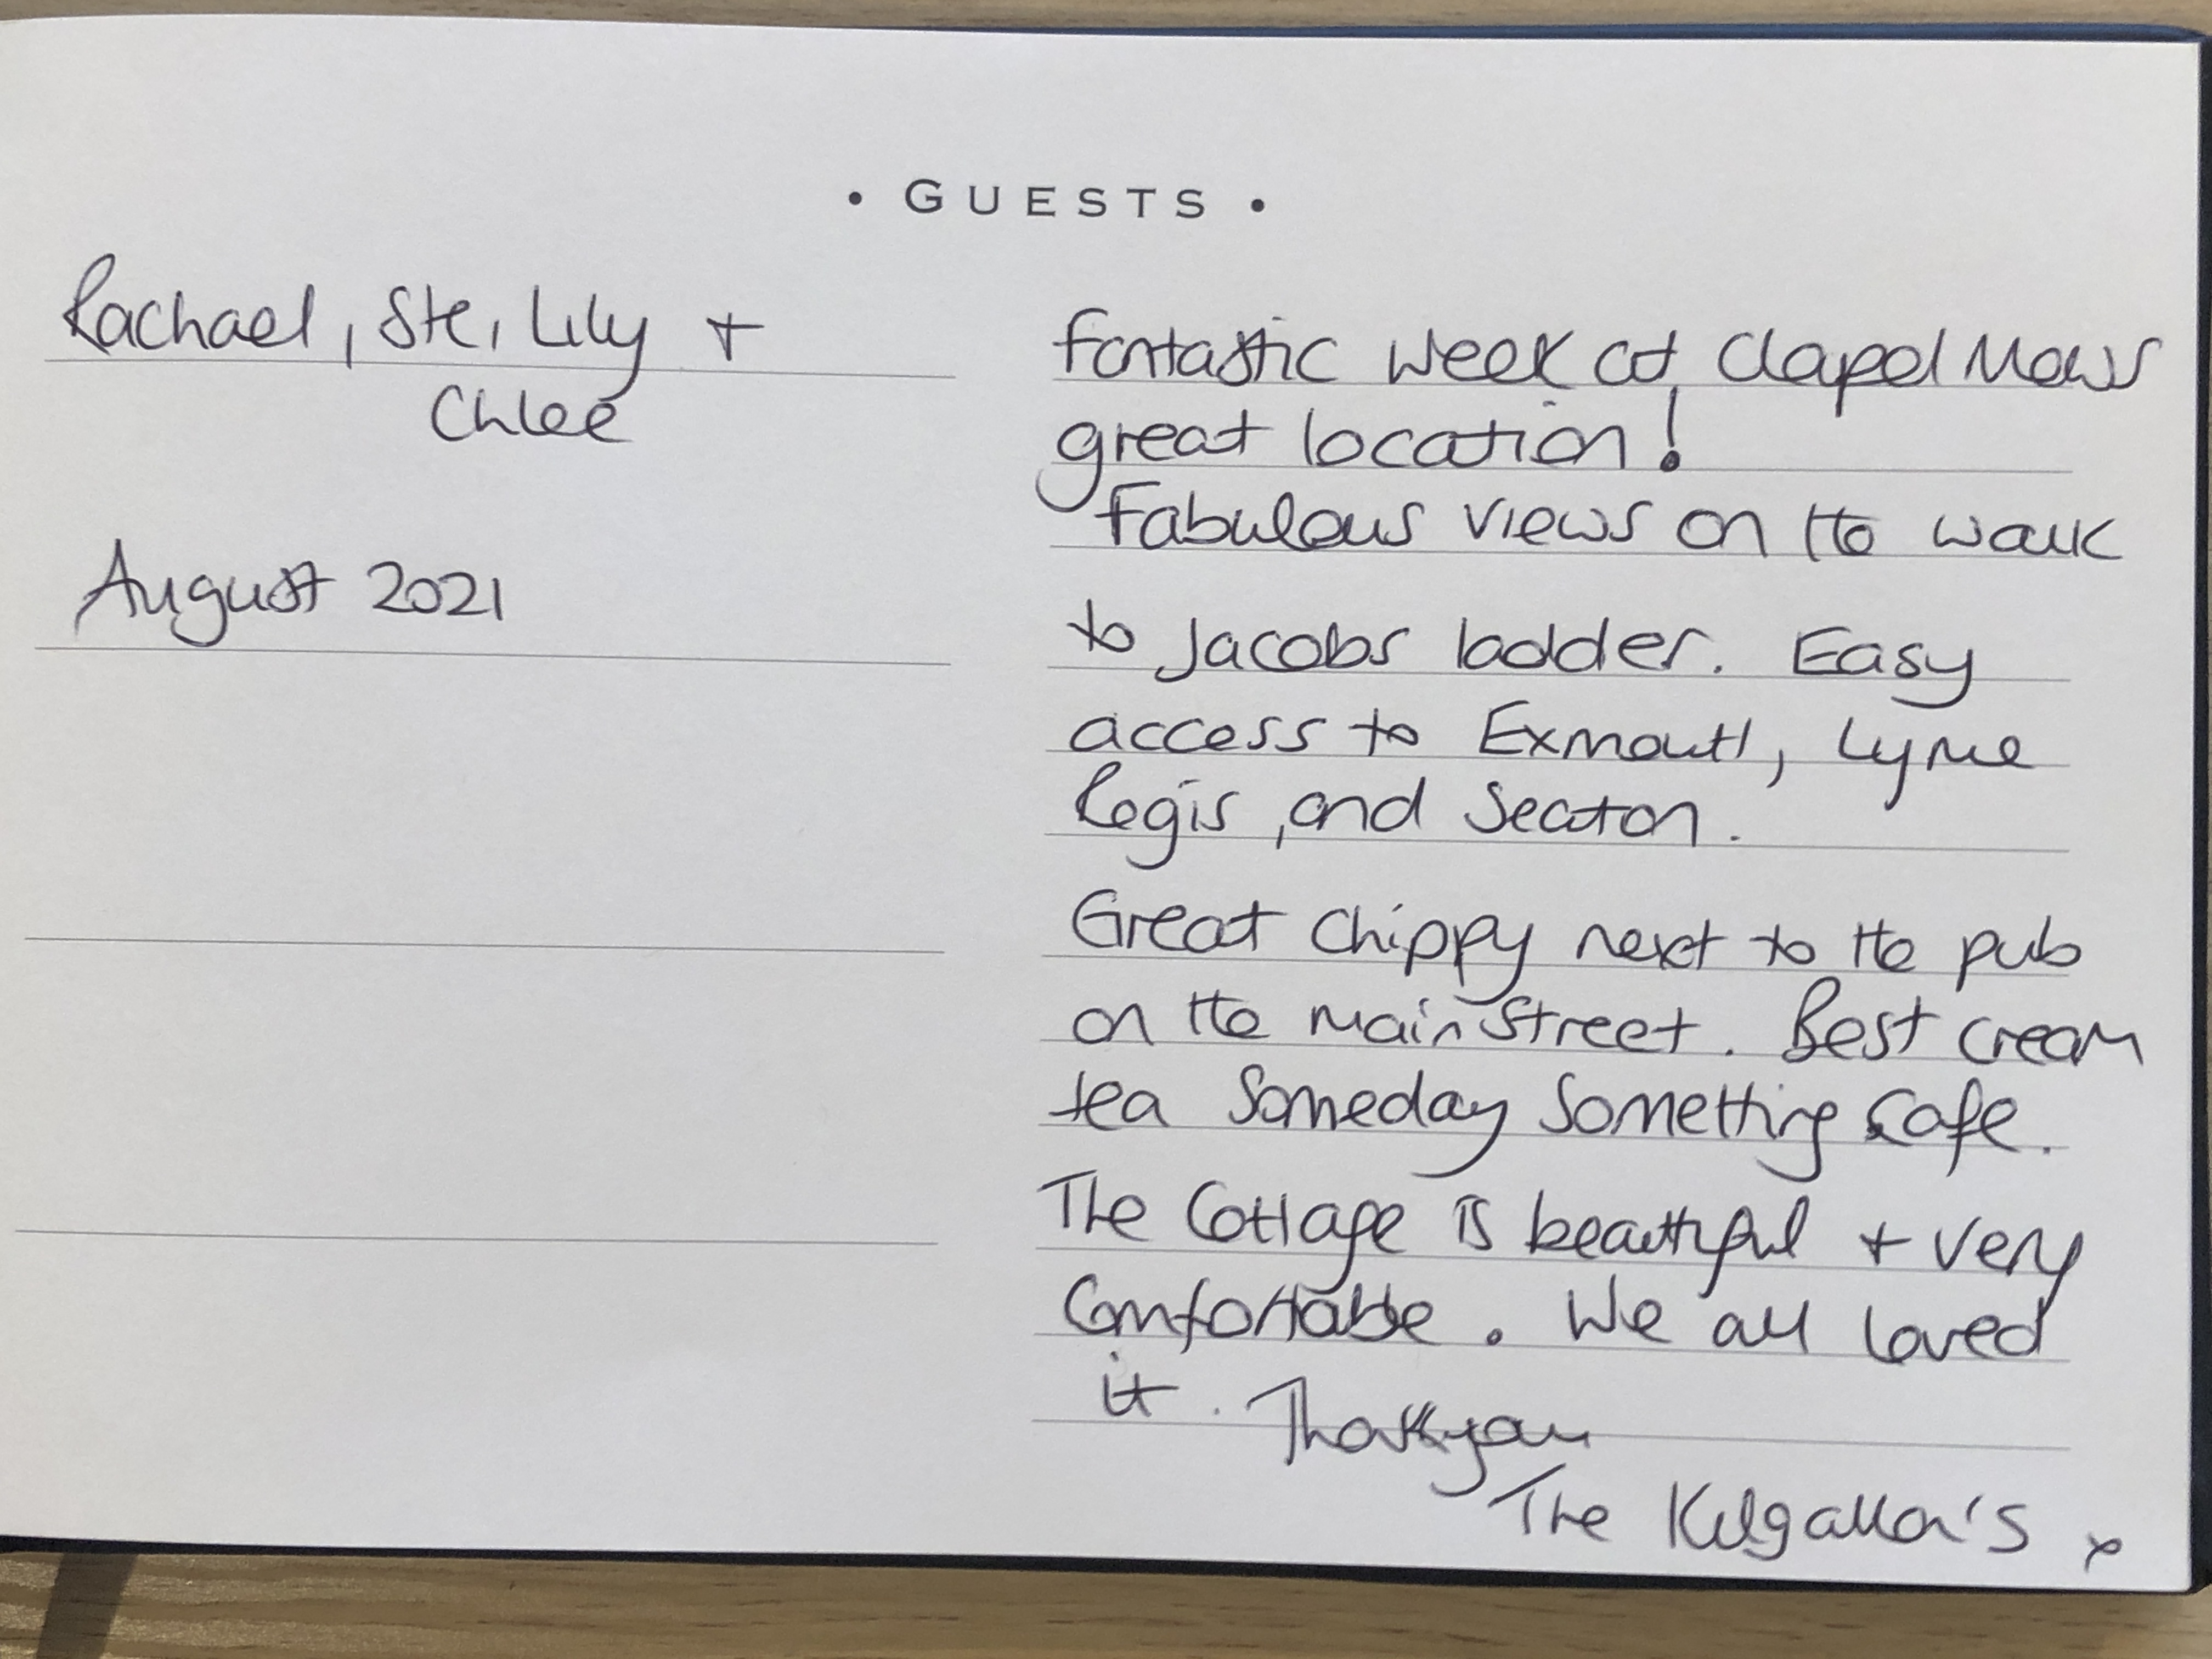 • GUESTS •
Rachael, Ste, Lily +
Chloe
August 2021
Fantastic week at Chapel Mews
great location!
Fabulous views on the walk
to Jacobs ladder. Easy
access to Exmouth, Lyme
Regis, and Seaton.
Great Chippy next to the pub
on the main street. Best cream
tea Someday Something Cafe.
The Cottage is beautiful + very
Comfortable. We all loved
it. Thankyou
The Kilgallon's x